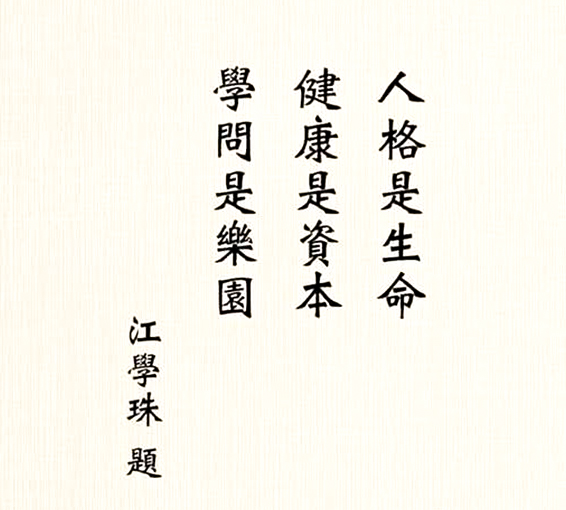 人格是生命
健康是資本
學問是樂園
江學珠 題